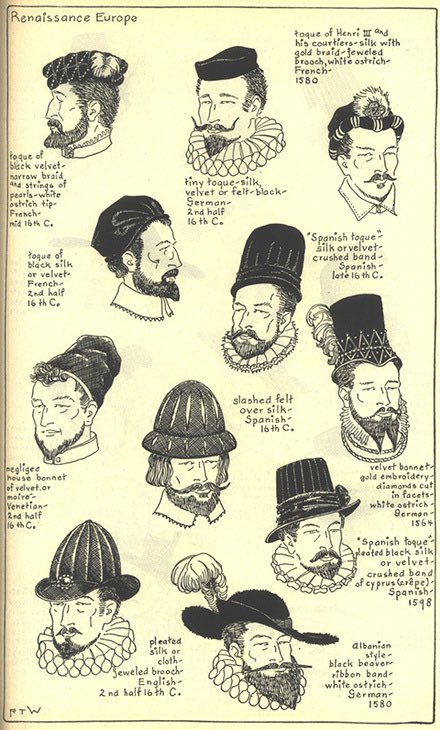 Renaissance Europe
toque of Henri III and
his courtiers-silk with
gold braid-jeweled
brooch, white ostrich-
French-
1580
toque of
black velvet-
narrow braid,
and strings of
pearls-white
ostrich tip-
French-
mid 16th C.
tiny toque-silk,
velvet or felt-black-
German-
2nd half
16th C.
toque of
black silk
or velvet-
French-
2nd half
16th C.
"Spanish toque"-
silk or velvet-
crushed band-
Spanish-
late 16th C.
slashed felt
over silk-
Spanish-
16th C.
negligee
house bonnet
of velvet or
moiré-
Venetian-
2nd half
16th C.
velvet bonnet-
gold embroidery-
diamonds cut
in facets-
white ostrich-
German-
1564
"Spanish toque"-
pleated black silk
or velvet-
crushed band
of cyprus (crêpe)-
Spanish-
1598
pleated
silk or
cloth-
jeweled brooch-
English-
2nd half 16th C.
albanian
style-
black beaver-
ribbon band-
white ostrich-
German-
1580
RTW